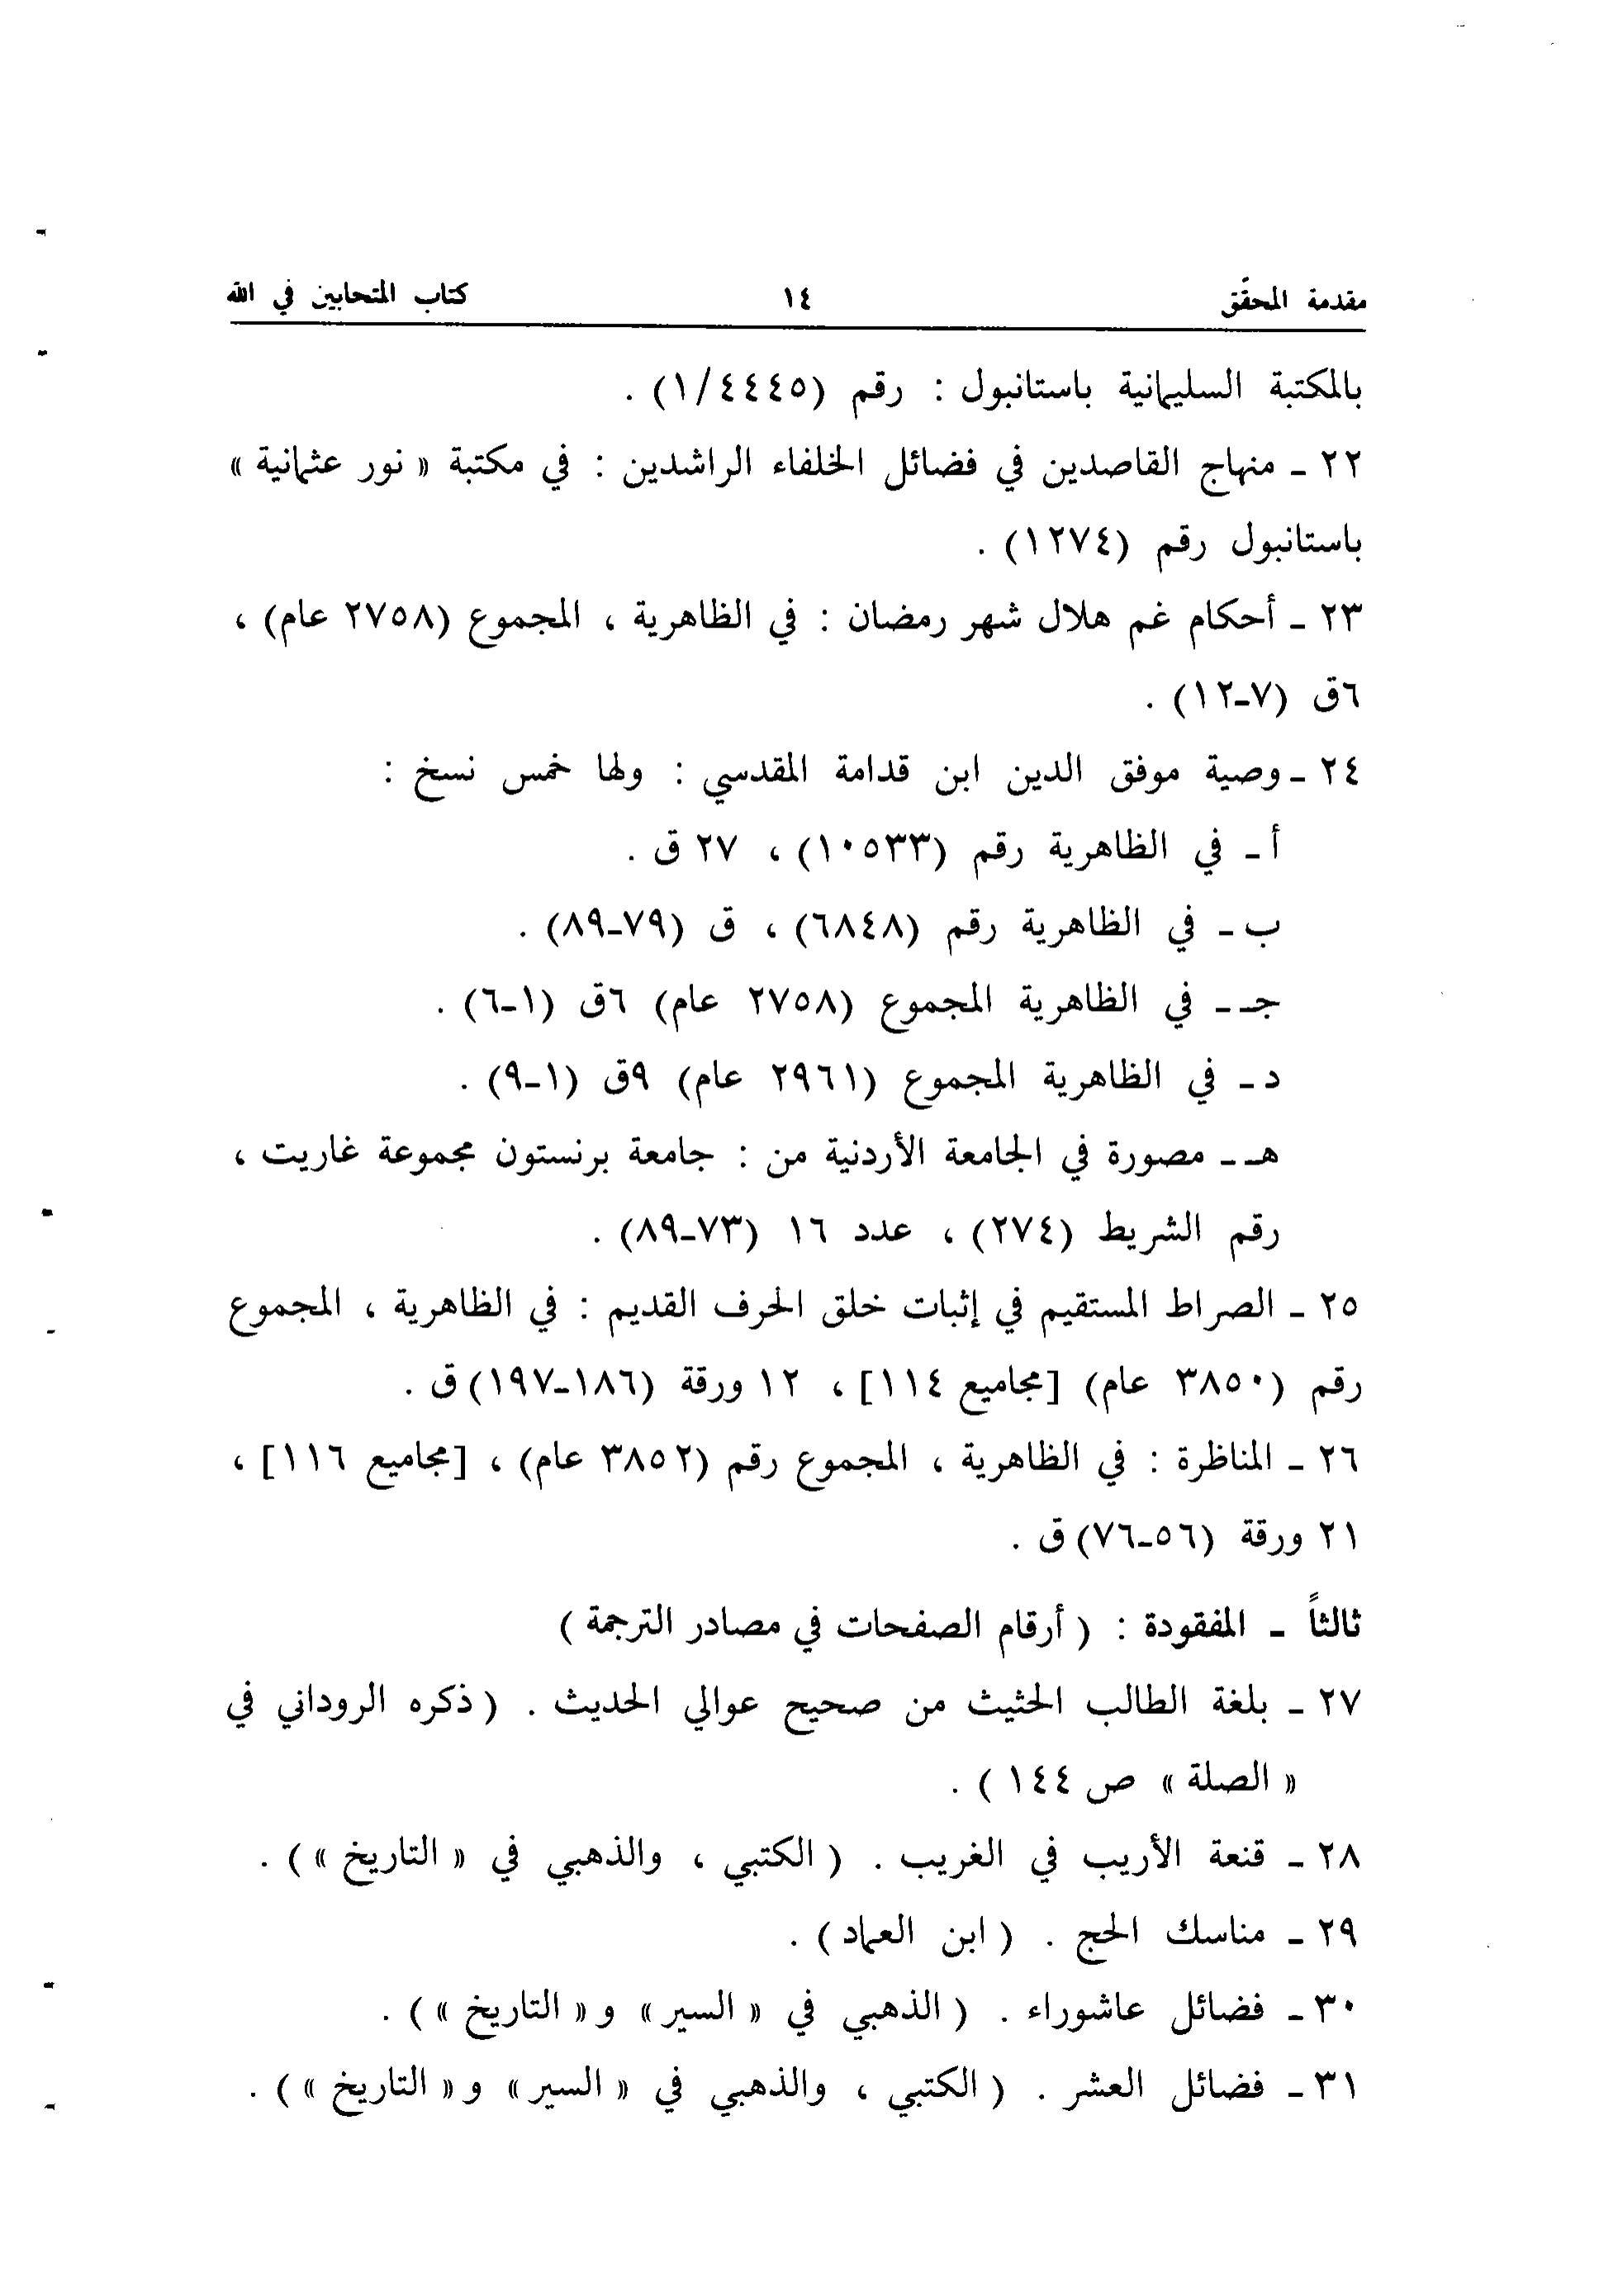 مقدمة المحقّق ١٤ كتاب المتحابين في الله
بالمكتبة السليمانية باستانبول : رقم (١/٤٤٤٥) .
٢٢ ـ منهاج القاصدين في فضائل الخلفاء الراشدين : في مكتبة « نور عثمانية »
باستانبول رقم (١٢٧٤) .
٢٣ ـ أحكام غم هلال شهر رمضان : في الظاهرية ، المجموع (٢٧٥٨ عام) ،
٦ق (٧ـ١٢) .
٢٤ ـ وصية موفق الدين ابن قدامة المقدسي : ولها خمس نسخ :
أ ـ في الظاهرية رقم (١٠٥٣٣) ، ٢٧ ق .
ب ـ في الظاهرية رقم (٦٨٤٨) ، ق (٧٩ـ٨٩) .
جـ ـ في الظاهرية المجموع (٢٧٥٨ عام) ٦ق (١ـ٦) .
د ـ في الظاهرية المجموع (٢٩٦١ عام) ٩ق (١ـ٩) .
هـ ـ مصورة في الجامعة الأردنية من : جامعة برنستون مجموعة غاريت ،
رقم الشريط (٢٧٤) ، عدد ١٦ (٧٣ـ٨٩) .
٢٥ ـ الصراط المستقيم في إثبات خلق الحرف القديم : في الظاهرية ، المجموع
رقم (٣٨٥٠ عام) [مجاميع ١١٤] ، ١٢ ورقة (١٨٦ـ١٩٧) ق .
٢٦ ـ المناظرة : في الظاهرية ، المجموع رقم (٣٨٥٢ عام) ، [مجاميع ١١٦] ،
٢١ ورقة (٥٦ـ٧٦) ق .
ثالثاً ـ المفقودة : ( أرقام الصفحات في مصادر الترجمة )
٢٧ ـ بلغة الطالب الحثيث من صحيح عوالي الحديث . ( ذكره الروداني في
« الصلة » ص ١٤٤ ) .
٢٨ ـ قنعة الأريب في الغريب . ( الكتبي ، والذهبي في « التاريخ » ) .
٢٩ ـ مناسك الحج . ( ابن العماد ) .
٣٠ ـ فضائل عاشوراء . ( الذهبي في « السير » و « التاريخ » ) .
٣١ ـ فضائل العشر . ( الكتبي ، والذهبي في « السير » و « التاريخ » ) .